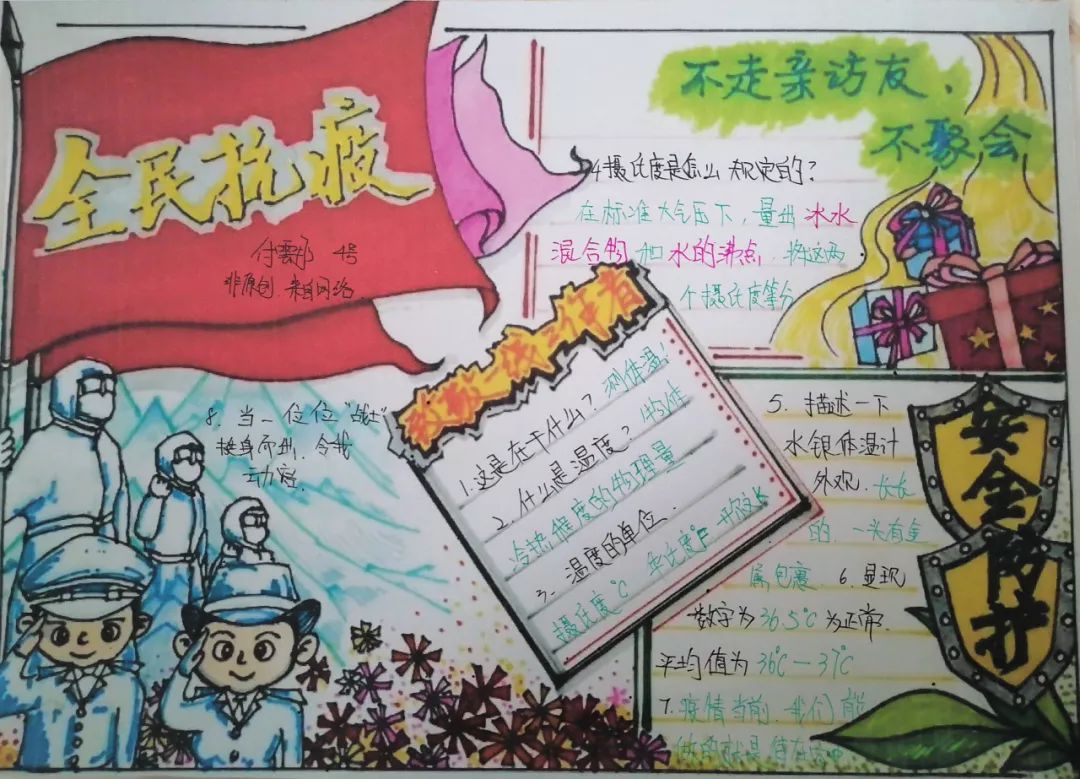 全民抗疫
4号
非原创 来自网络
不走亲访友,
不聚会
4摄氏度是怎么规定的?
在标准大气压下,量出冰水
混合物和水的沸点.将这两
个摄氏度等分
致敬一线工作者
1.这是在干什么?测体温!
2.什么是温度?物体
冷热程度的物理量
3.温度的单位.
摄氏度℃ 华氏度℉ 开氏K
8.当一位位"战士"
挺身而出,令我
动容.
5.描述一下
水银体温计
外观.长长
的,一头有金
属包裹.6.显现
数字为36.5℃为正常.
平均值为36℃—37℃
7.疫情当前,我们能
做的就是待在家中
安全防护